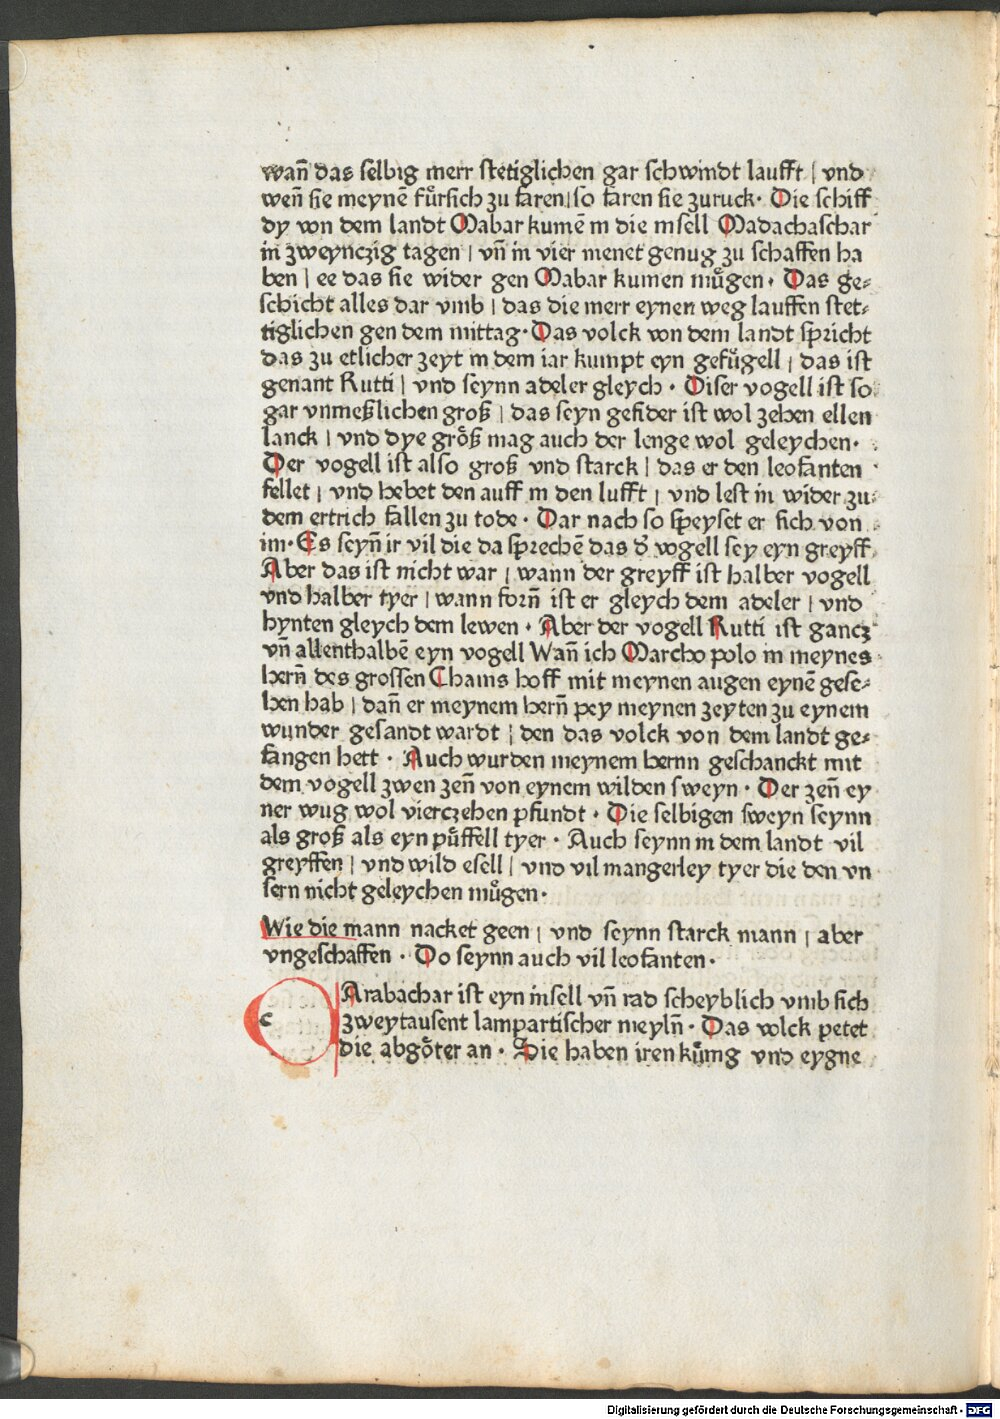 wañ das selbig merr stetiglichen gar schwindt laufft | vnd
weñ sie meynē fu̎rsich zu faren | so faren sie zuruck · Die schiff
dy von dem landt Mabar kumē in die insell Madachaschar
in zweynczig tagen | vñ in vier menet genug zu schaffen ha
ben | ee das sie wider gen Mabar kumen mu̎gen · Das ge⸗
schicht alles dar vmb | das die merr eynen weg lauffen stet⸗
tiglichen gen dem mittag · Das volck von dem landt spricht
das zu etlicher zeyt in dem iar kumpt eyn gefu̎gell | das ist
genant Rutti | vnd seynn adeler gleych · Diser vogell ist so
gar vnmeßlichen groß | das seyn gefider ist wol zehen ellen
lanck | vnd dye gro̎ß mag auch der lenge wol geleychen ·
Der vogell ist also groß vnd starck | das er den leofanten
fellet | vnd hebet den auff in den lufft | vnd lest in wider zu
dem ertrich fallen zu tode · Dar nach so speyset er sich von
im · Es seyñ ir vil die da sprechē das d̕ vogell sey eyn greyff
Aber das ist nicht war | wann der greyff ist halber vogell
vnd halber tyer | wann forñ ist er gleych dem adeler | vnd
hynten gleych dem lewen · Aber der vogell Rutti ist gancz
vñ allenthalbē eyn vogell Wañ ich Marcho polo in meynes
herñ des grossen Chams hoff mit meynen augen eynē gese⸗
hen hab | dañ er meynem herñ pey meynen zeyten zu eynem
wunder gesandt wardt | den das volck von dem landt ge⸗
fangen hett · Auch wurden meynem hernn geschanckt mit
dem vogell zwen zeñ von eynem wilden sweyn · Der zeñ ey
ner wug wol vierczehen pfundt · Die selbigen sweyn seynn
als groß als eyn pu̎ffell tyer · Auch seynn in dem landt vil
greyffen | vnd wild esell | vnd vil mangerley tyer die den vn
sern nicht geleychen mu̎gen ·
Wie die mann nacket geen | vnd seynn starck mann | aber
vngeschaffen · Do seynn auch vil leofanten ·
c Arabachar ist eyn insell vñ rad scheyblich vmb sich
zweytausent lampartischer meylñ · Das volck petet
die abgo̎ter an · Sie haben iren ku̎nig vnd eygne
Digitalisierung gefördert durch die Deutsche Forschungsgemeinschaft - DFG